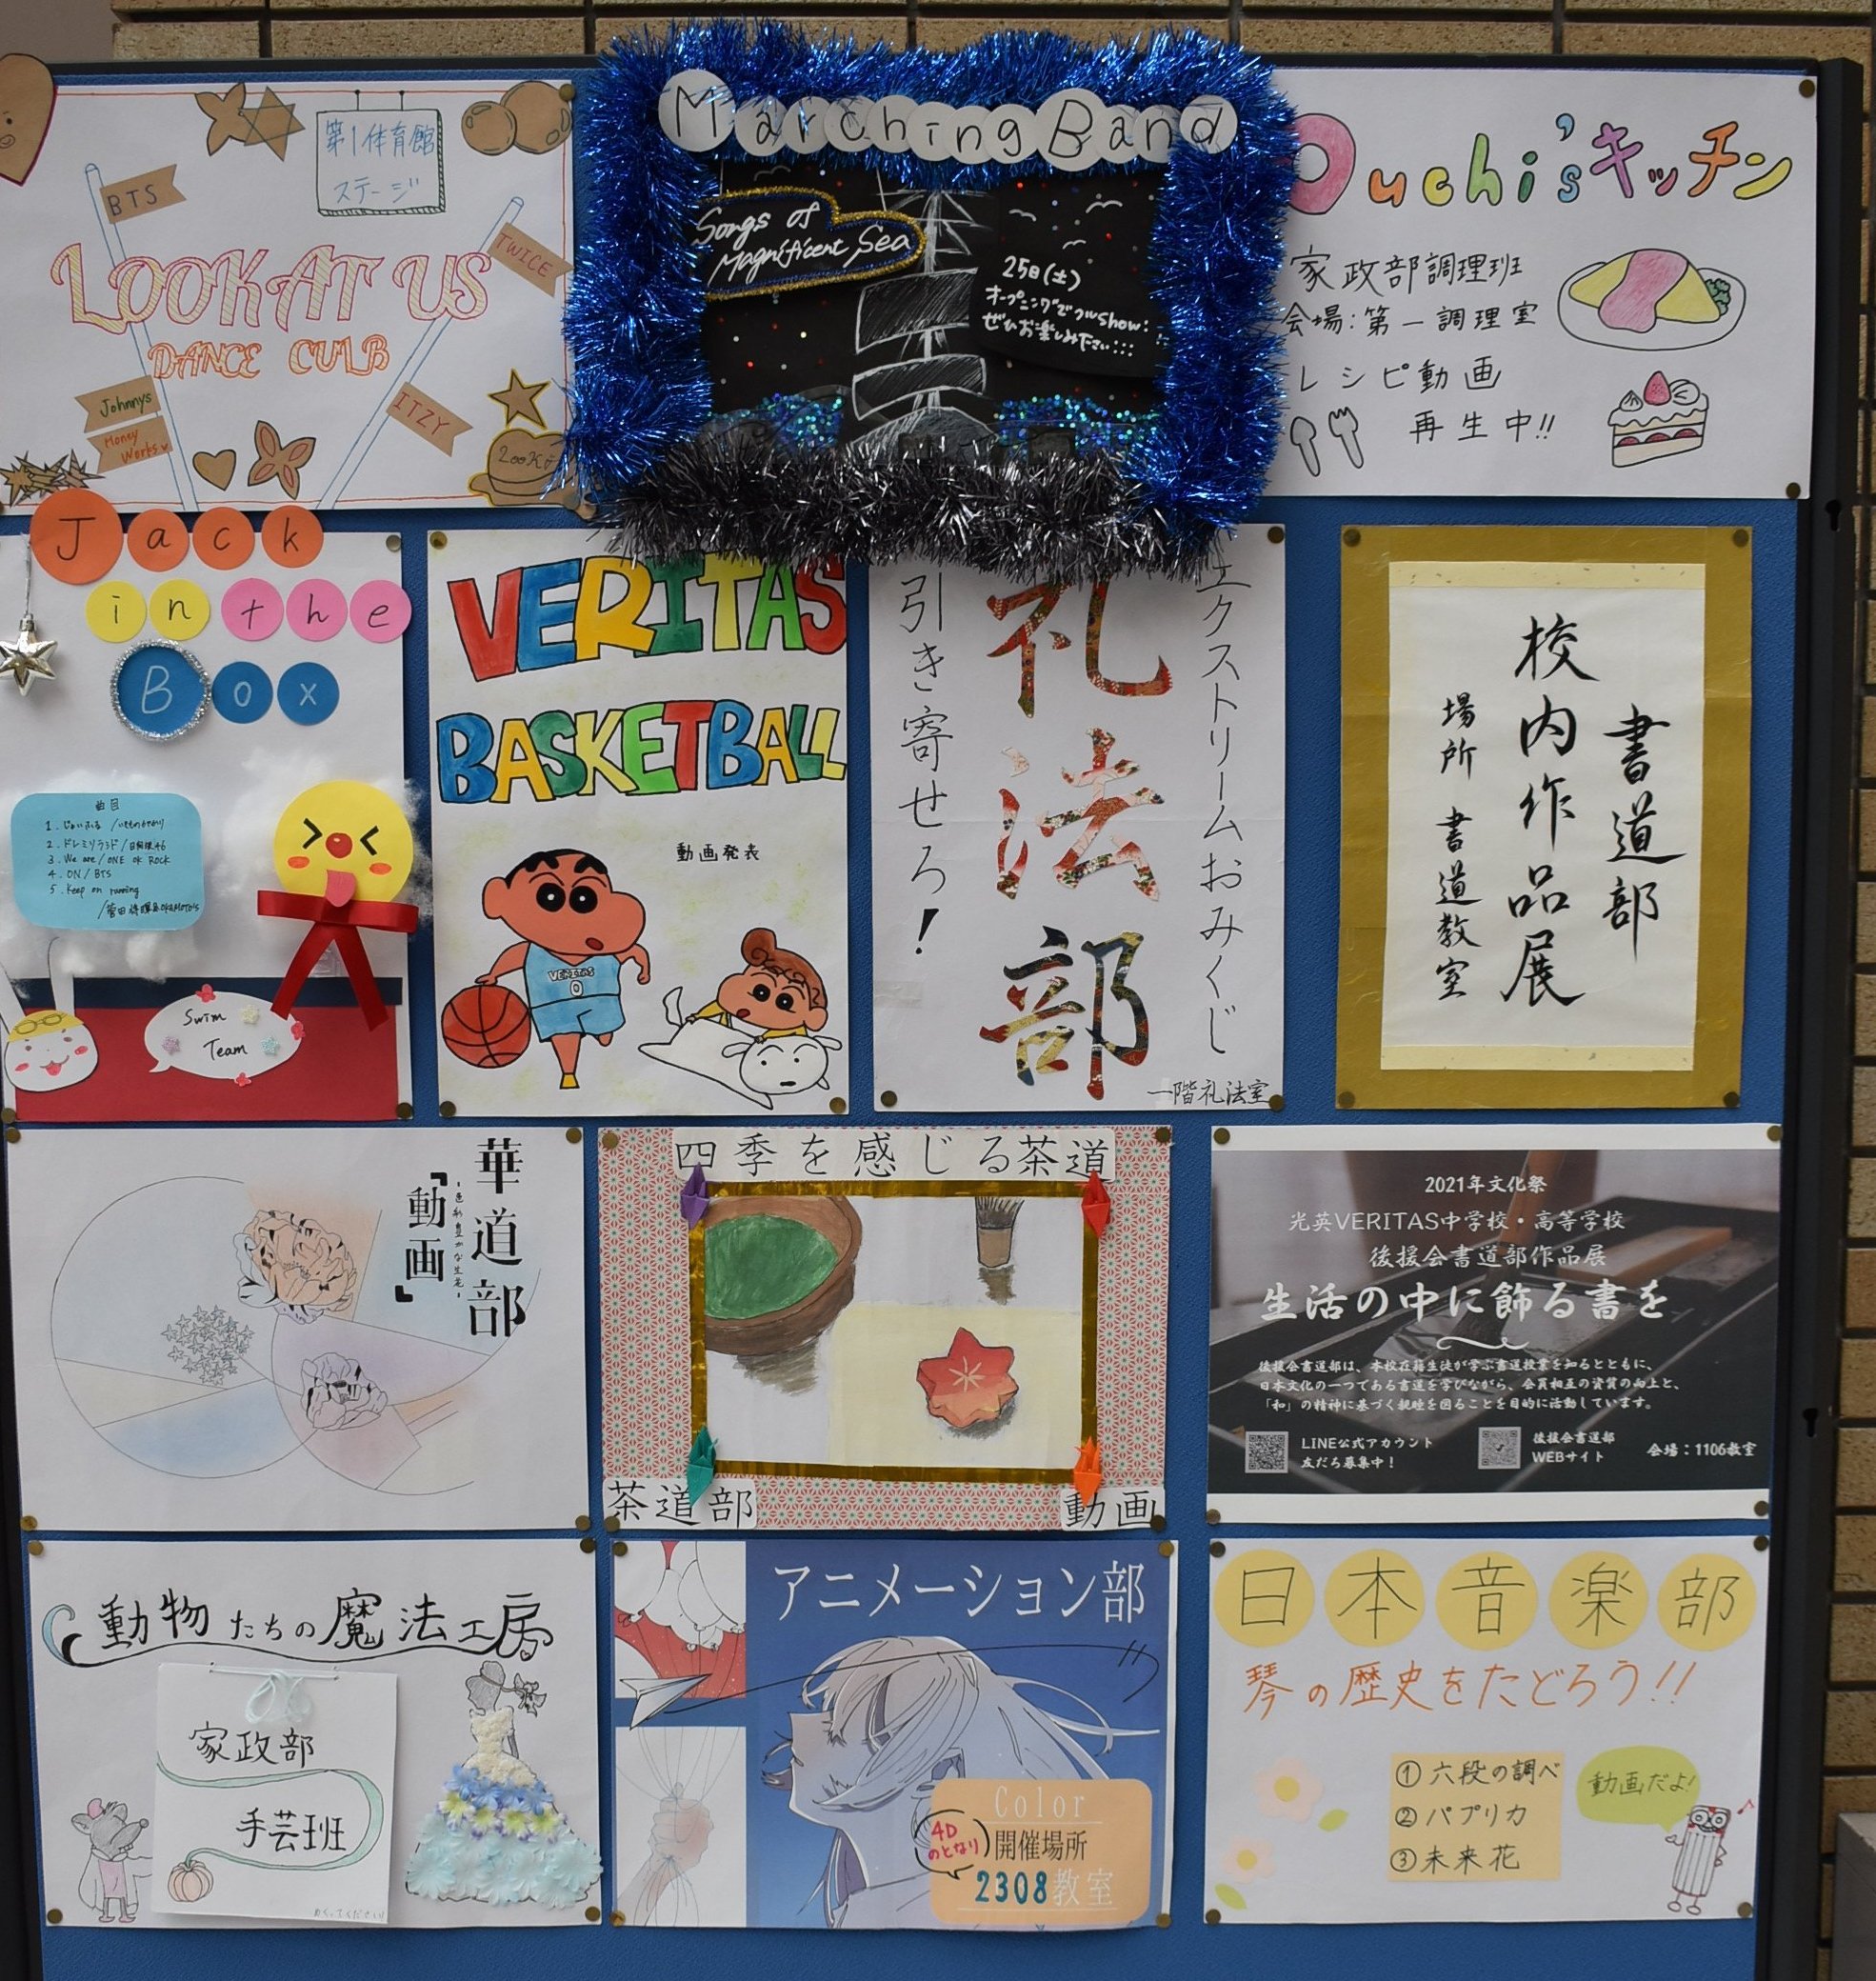 第1体育館
ステージ
BTS
TWICE
LOOK AT US
DANCE CULB
Johnnys
Money
Works
ITZY
Marching Band
Songs of
Magnificent Sea
25日(土)
オープニングでつ山show!
ぜひお楽しみ下さい:::
Ouchi'sキッチン
家政部調理班
会場:第一調理室
レシピ動画
再生中!!
Jack
in the
Box
曲目
2.ドレミソラシド/日向坂46
3.We are/ONE OK ROCK
4.ON/BTS
5.Keep on running
Swim
Team
VERITAS
BASKETBALL
動画発表
VERITAS
0
エクストリームおみくじ
礼法部
引き寄せろ!
一階礼法室
書道部
校内作品展
場所 書道教室
華道部
-色彩豊かな生花-
『動画』
四季を感じる茶道
茶道部
動画
2021年文化祭
光英VERITAS中学校・高等学校
後援会書道部作品展
生活の中に飾る書を
後援会書道部は、本校在籍生徒が学ぶ書道授業を知るとともに、
日本文化の一つである書道を学びながら、会員相互の資質の向上と、
「和」の精神に基づく親睦を図ることを目的に活動しています。
LINE公式アカウント
友だち募集中!
後援会書道部
WEBサイト
会場:1106教室
動物たちの魔法工房
家政部
手芸班
めくってください!
アニメーション部
Color
4D
のとなり
開催場所
2308教室
日本音楽部
琴の歴史をたどろう!!
①六段の調べ
②パプリカ
③未来花
動画だよ!